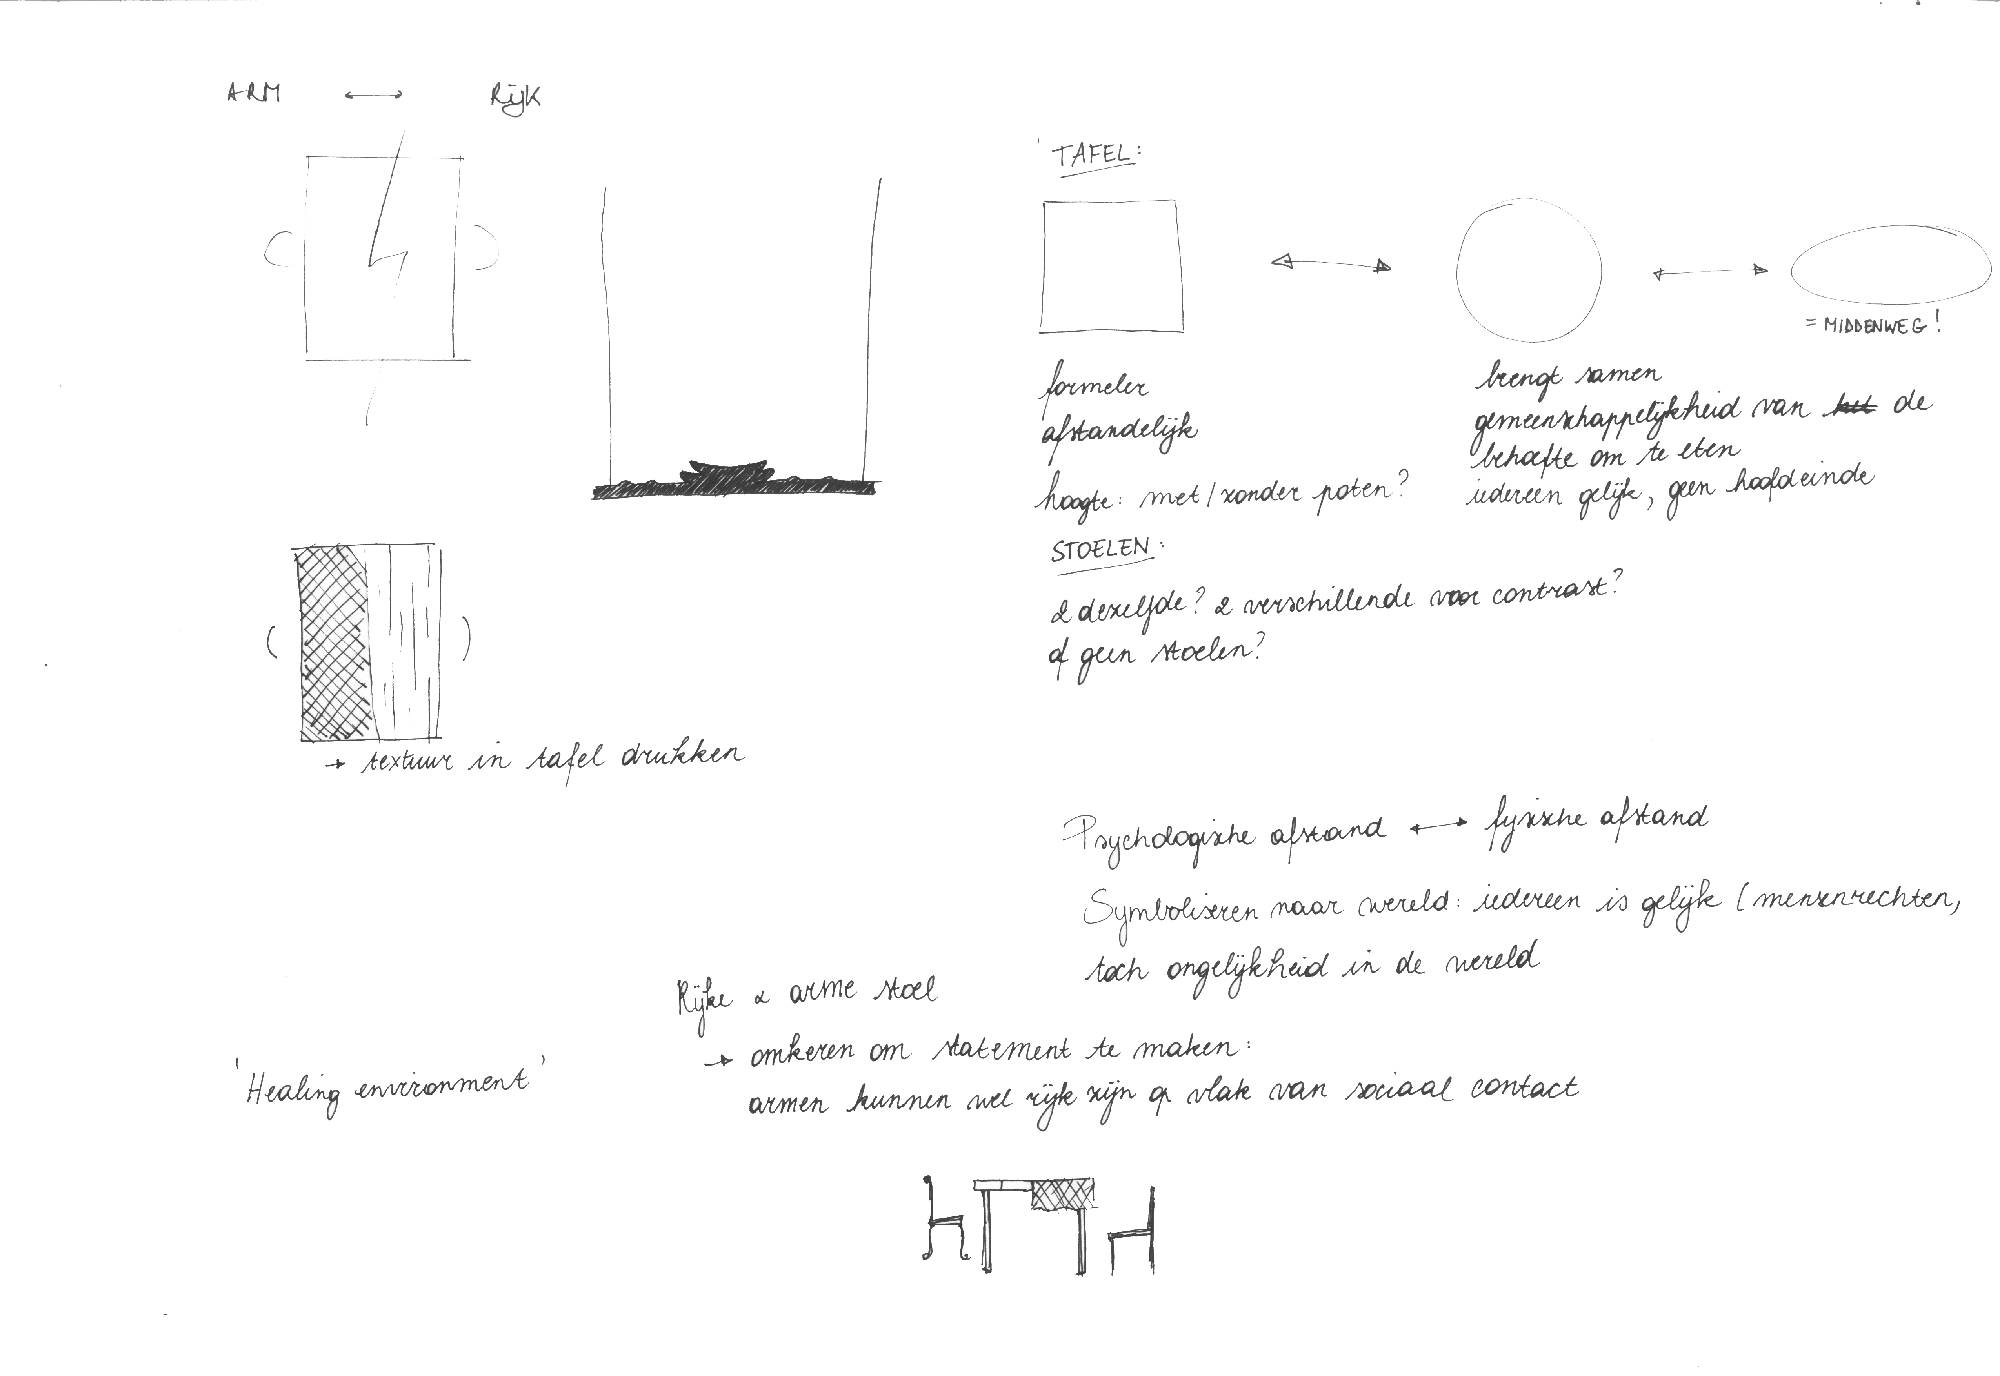 ARM ↔ Rijk
TAFEL:
= MIDDENWEG!
formeler
afstandelijk
hoogte: met/zonder poten?
brengt samen
gemeenschappelijkheid van het de
behoefte om te eten
iedereen gelijk, geen hoofdeinde
STOELEN:
2 dezelfde? 2 verschillende voor contrast?
of geen stoelen?
→ textuur in tafel drukken
Psychologische afstand ↔ fysische afstand
Symboliseren naar wereld: iedereen is gelijk (mensenrechten,
toch ongelijkheid in de wereld
Rijke & arme stoel
→ omkeren om statement te maken:
armen kunnen wel rijk zijn op vlak van sociaal contact
'Healing environment'